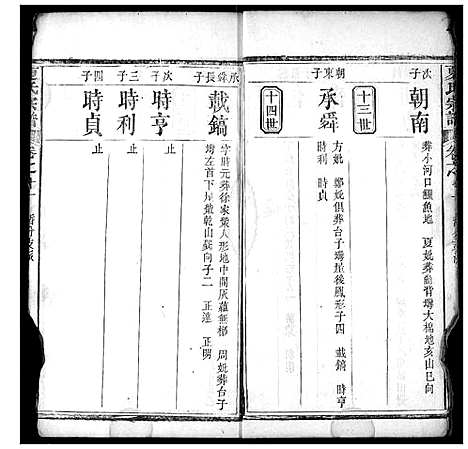 夏氏宗譜
次子
朝南
葬小河口鯉魚地 夏妣葬翁背塆大楊地亥山巳向
十三世
朝東子
承舜
方妣 鄭妣俱葬台子塆屋後鳳形子四 載鎬 時亨
時利 時貞
十四世
承舜長子
載鎬
字時元葬徐家蕩人形地中間 周妣葬台子
塆左首下屋 乾山巽向子二 正達 正
次子
時亨
止
三子
時利
止
四子
時貞
止
夏氏宗譜